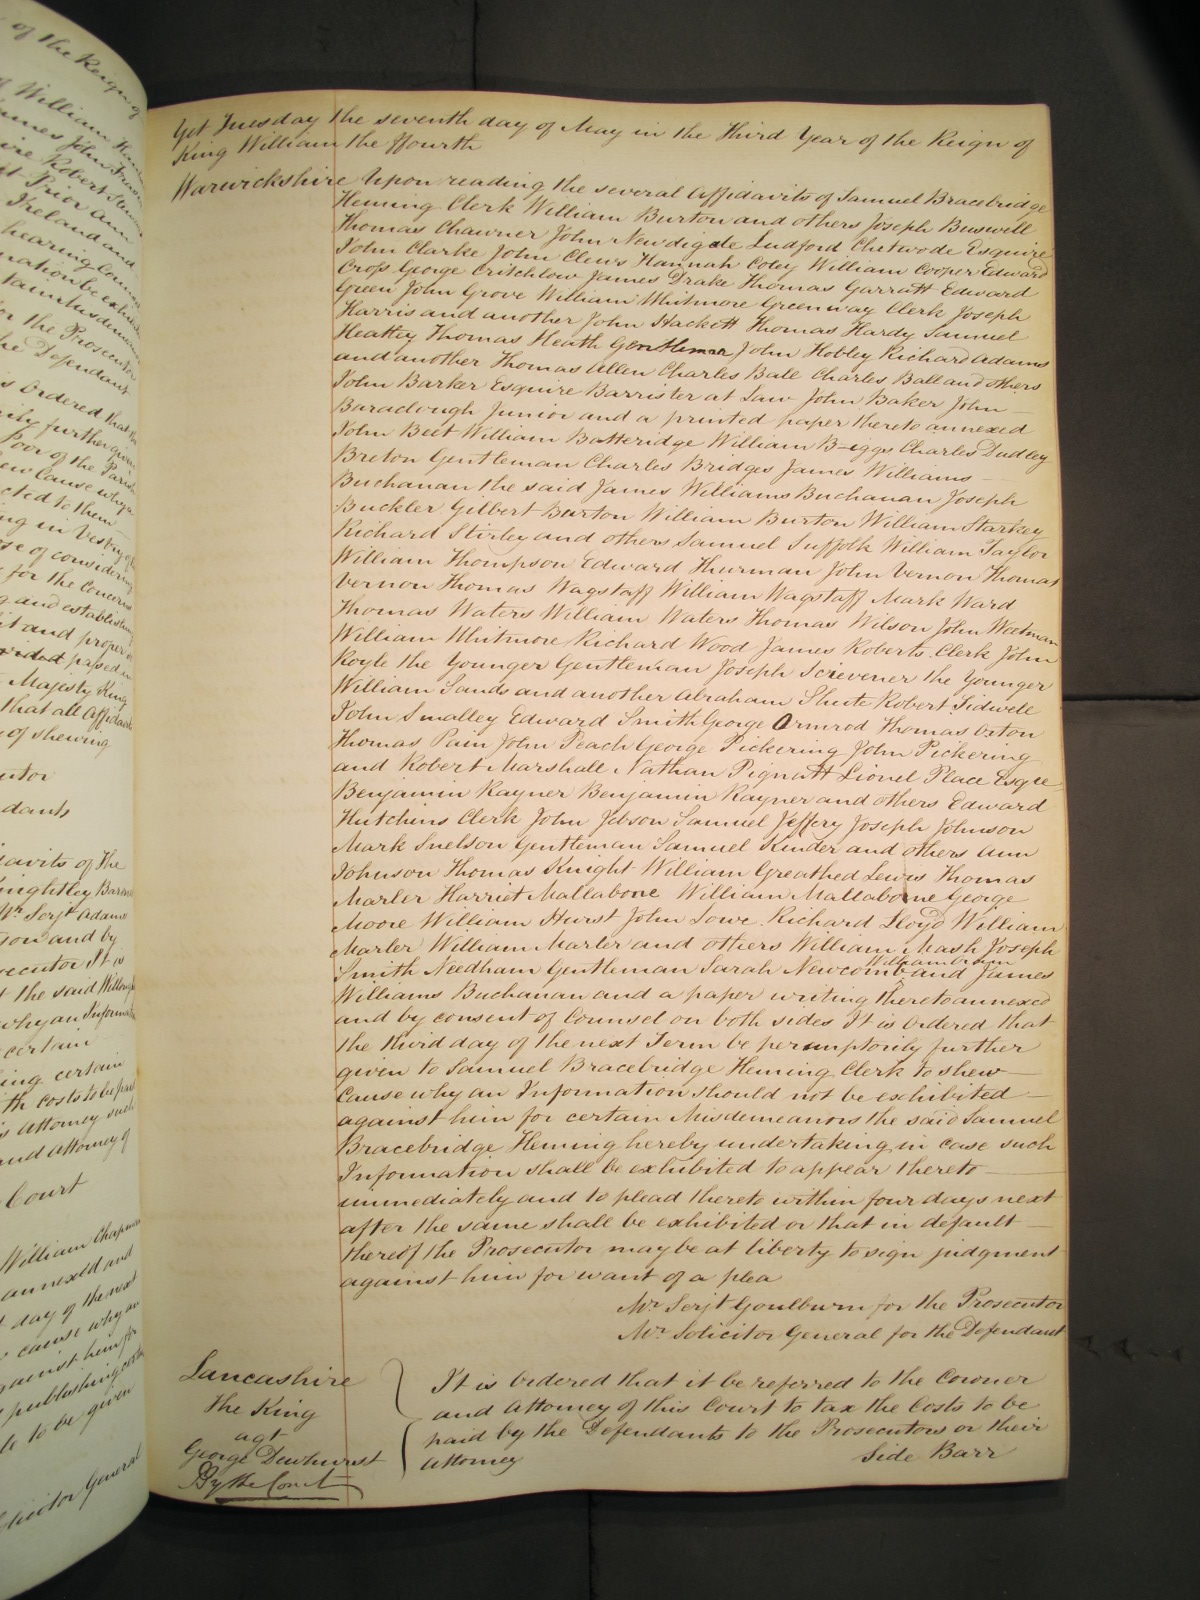 Yet Tuesday the seventh day of May in the Third Year of the Reign of
King William the ffourth
Warwickshire Upon reading the several Affidavits of Samuel Bracebridge
Heming Clerk William Burton and others Joseph Buswell
Thomas Chawner John Newdigate Ludford Chetwode Esquire
John Clarke John Clews Hannah Coley William Cooper Edward
Cross George Critchlow James Drake Thomas Garratt Edward
Green John Grove William Whitmore Greenway Clerk Joseph
Harris and another John Hackett Thomas Hardy Samuel
Heatley Thomas Heath Gentleman John Hobley Richard Adams
and another Thomas Allen Charles Ball Charles Ball and others
John Barker Esquire Barrister at Law John Baker John
Baraclough Junior and a printed paper thereto annexed
John Beet William Batteridge William Biggs Charles Dudley
Breton Gentleman Charles Bridges James Williams
Buchanan the said James Williams Buchanan Joseph
Buckler Gilbert Burton William Burton William Starkey
Richard Stirley and others Samuel Suffolk William Taylor
William Thompson Edward Thurman John Vernon Thomas
Vernon Thomas Wagstaff William Wagstaff Mark Ward
Thomas Waters William Waters Thomas Wilson John Weetman
William Whitmore Richard Wood James Roberts Clerk John
Royle the Younger Gentleman Joseph Scrivener the Younger
William Sands and another Abraham Shute Robert Sidwell
John Smalley Edward Smith George Ormrod Thomas Orton
Thomas Pain John Peach George Pickering John Pickering
and Robert Marshall Nathan Pignatt Lionel Place Esqre
Benjamin Rayner Benjamin Rayner and others Edward
Hutchins Clerk John Jebson Samuel Jeffery Joseph Johnson
Mark Snelson Gentleman Samuel Kinder and others Ann
Johnson Thomas Knight William Greathed Lewis Thomas
Marler Harriet Mallabone William Mallabone George
Moore William Hurst John Lowe Richard Lloyd William
Marler William Marler and others William Mash Joseph
Smith Needham Gentleman Sarah Newcomb William Brown and James
Williams Buchanan and a paper writing thereto annexed
and by consent of Counsel on both sides It is Ordered that
the third day of the next Term be peremptorily further
given to Samuel Bracebridge Heming Clerk to shew
Cause why an Information should not be exhibited
against him for certain Misdemeanors the said Samuel
Bracebridge Heming hereby undertaking in case such
Information shall be exhibited to appear thereto
immediately and to plead thereto within four days next
after the same shall be exhibited or that in default
thereof the Prosecutor may be at liberty to sign judgment
against him for want of a plea
Mr. Serjt Goulburn for the Prosecutor
Mr. Solicitor General for the Defendant
Lancashire
The King
agt
George Dewhurst
By the Court
It is Ordered that it be referred to the Coroner
and Attorney of this Court to tax the Costs to be
paid by the Defendants to the Prosecutors or their
Attorney
Side Barr